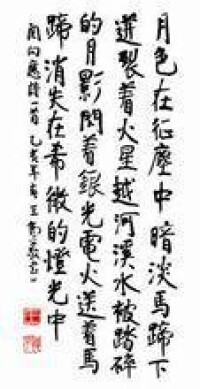 月色在征塵中暗淡馬蹄下
迸裂着火星越河溪水被踏碎
的月影閃着銀光電火送着馬
蹄消失在希微的燈光中